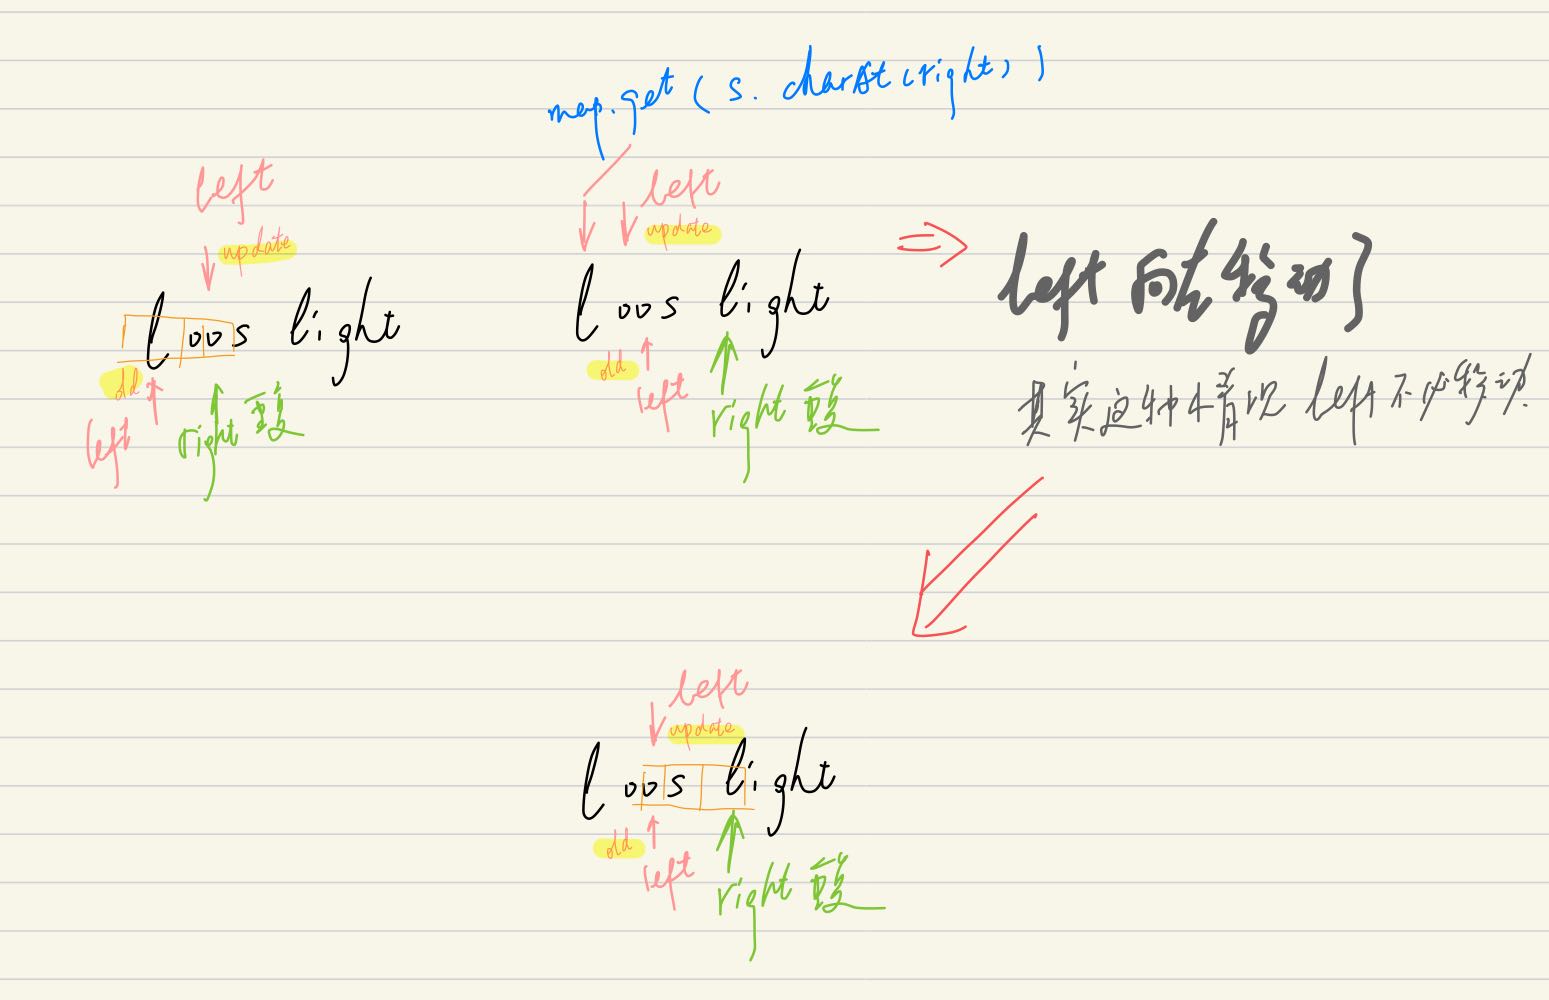 map.get(s.charAt(right))
left
update
loos light
old
left
right 重复
left
update
loos light
old
left
right 重复
left 向左移动了
其实这种情况 left 不必移动.
left
update
loos light
old
left
right 重复